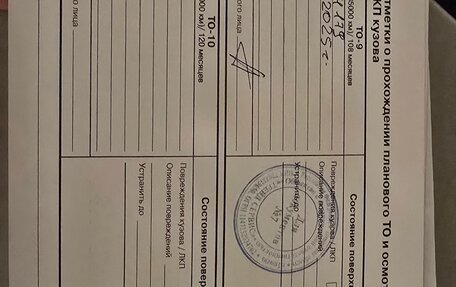 отметки о прохождении планового ТО и осмот
КП кузова
ТО-9
5000 км)/ 108 месяцев
179
2025г.
ого лица
Состояние поверх
Повреждения кузова / ЛКП
Описание повреждений
Устранить до
Для
документов
№7
ТО-10
000 км)/ 120 месяцев
ого лица
Состояние поверх
Повреждения кузова / ЛКП
Описание повреждений
Устранить до